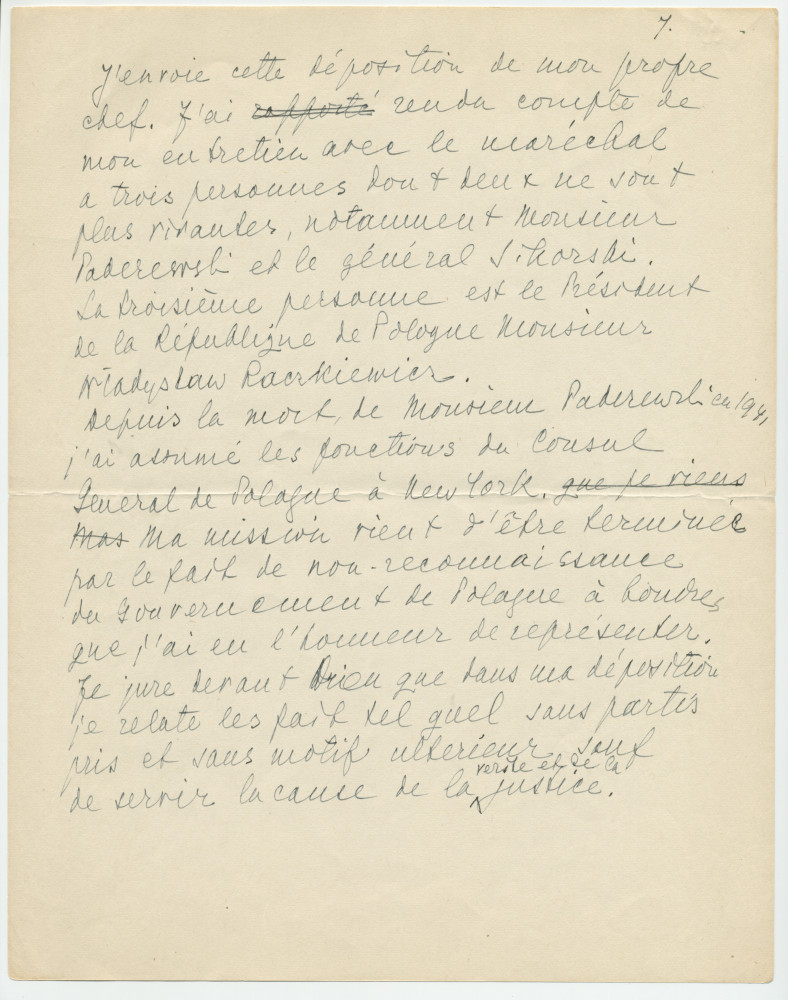 7.
J'envoie cette déposition de mon propre
chef. J'ai rapporté rendu compte de
mon entretien avec le maréchal
a trois personnes dont deux ne sont
plus vivantes, notamment Monsieur
Paderewski et le général Sikorski.
La troisième personne est le Président
de la République de Pologne Monsieur
Władysław Raczkiewicz.
Depuis la mort de Monsieur Paderewski en 1941
j'ai assumé les fonctions du Consul
General de Pologne à New York. que je viens
Mas Ma mission vient d'être terminée
par le fait de non-reconnaissance
du Gouvernement de Pologne à Londres
que j'ai eu l'honneur de représenter.
Je jure devant Dieu que dans ma déposition
je relate les fait tel quel sans partis
pris et sans motif ulterieur sauf
verite et de la
de servir la cause de la justice.